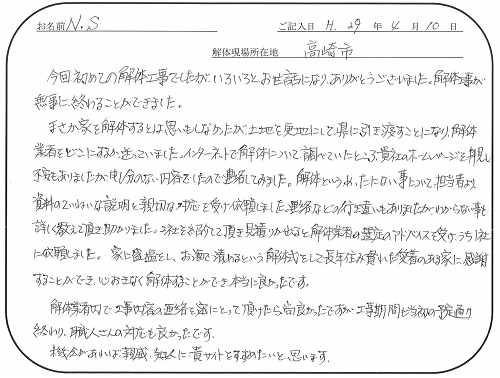 お名前 N.S ご記入日 H.29 年 4 月 10 日
解体現場所在地 高崎市
今回初めての解体工事でしたが、いろいろとお世話になり、ありがとうございました。解体工事が
無事に終わることができました。
まさか家を解体するとは思いもしなかったが、土地を更地にして県に引き渡すことになり、解体
業者をどこにするか迷っていました。インターネットで解体について調べていたところ貴社のホームページを拝見し
不安もありましたが申し分のない内容でしたので連絡してみました。解体という
資料のていねいな説明と親切な対応を受け依頼しました。連絡などの行き違いもありましたがわからない事を
詳しく教えて頂き助かりました。3社を紹介して頂き見積りがでると解体業者の選定のアドバイスを受け、うち1社
に依頼しました。家に塩盛をし、お酒で清めるという解体式をして長年住み慣れた愛着のある家に感謝
することができ、心おきなく解体することができ本当に良かったです。
解体業者内で工事内容の連絡を密にとって頂けたら尚良かったですが、工事期間も当初の予定通り
終わり、職人さんの対応も良かったです。
機会があれば親戚、知人に貴サイトをすすめたいと思います。